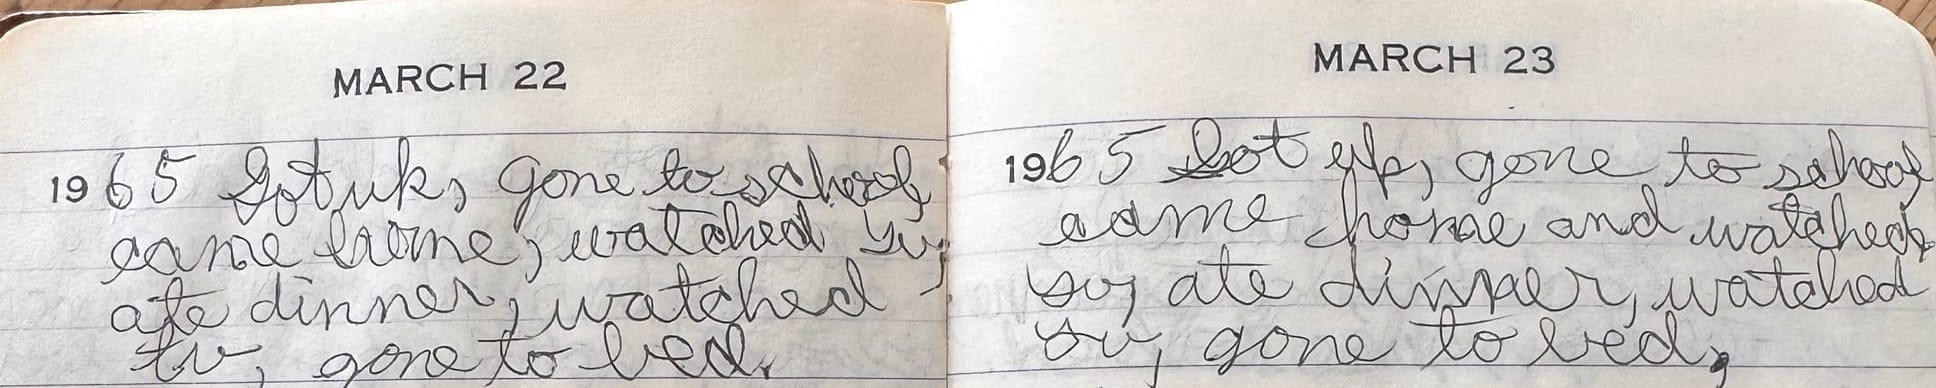 MARCH 22
1965 Got up, gone to school
came home, watched tv,
ate dinner, watched
tv, gone to bed.
MARCH 23
1965 Got up, gone to school
came home and watched
tv, ate dinner, watched
tv, gone to bed,